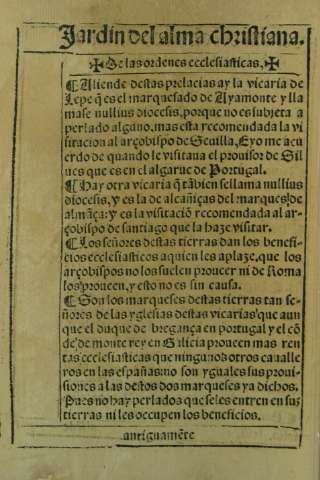 Jardin del alma christiana.
✠ De las ordenes ecclesiasticas. ✠
¶ Aliende destas prelacias ay la vicaria de
Lepe q̃ es el marquesado de Ayamonte y lla
mase nullius diocesis, porque no es subjeta a
perlado alguno, mas esta recomendada la vi
sitacion al arçobispo de Seuilla, E yo me acu
erdo de quando le visitaua el prouisor de Sil
ues que es en el algarue de Portugal.
¶ Hay otra vicaria q̃ tãbien se llama nullius
diocesis, y es la de alcañiças del marques de
almãça: y es la visitaciõ recomendada al ar-
çobispo de santiago que la haze visitar.
¶ Los señores destas tierras dan los benefi-
cios ecclesiasticos a quien les aplaze, que los
arçobispos no los suelen proueer ni de Roma
los proueen, y esto no es sin causa.
¶ Son los marqueses destas tierras tan se-
ñores de las yglesias destas vicarias que aun
que el duque de bregança en portugal y el cõ
de de monte rey en Galicia proueen mas ren
tas ecclesiasticas que ningunos otros caualle
ros en las españas: no son yguales sus proui-
siones a las destos dos marqueses ya dichos.
Pues no hay perlados que se les entren en sus
tierras ni les occupen los beneficios.
antiguamẽte